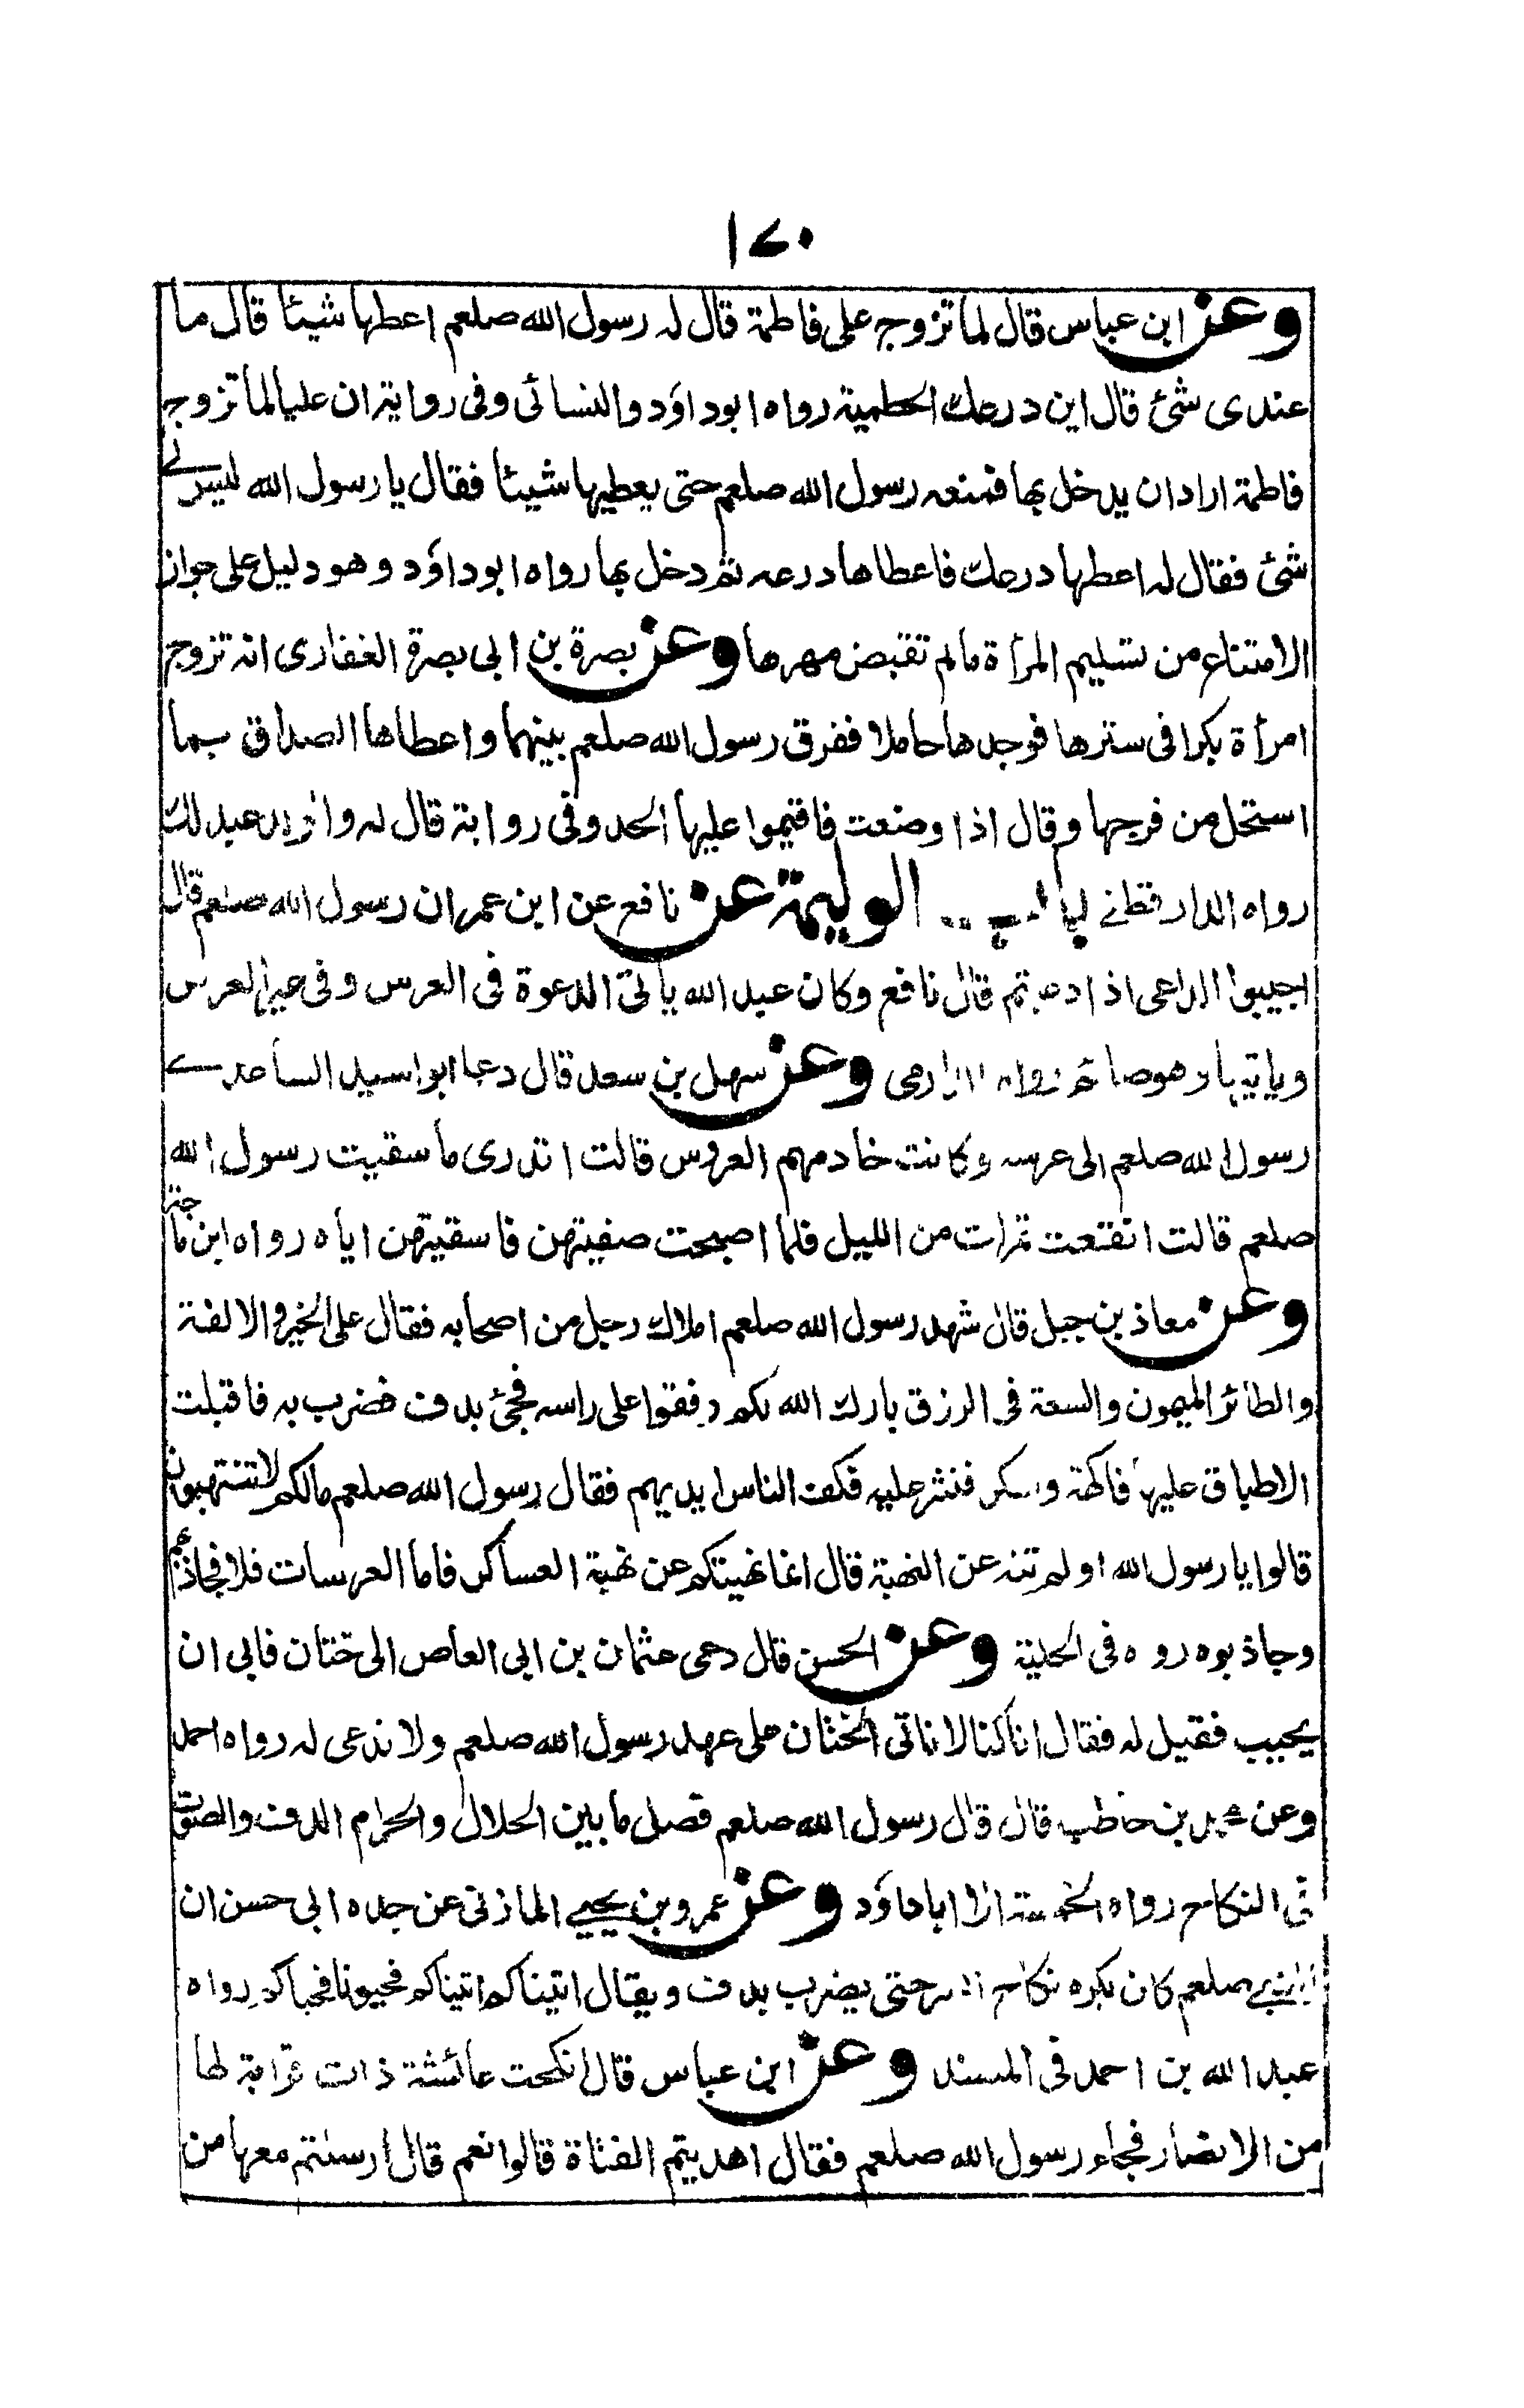 ١٧٠
وعن ابن عباس قال لما تزوج على فاطمة قال له رسول الله صلعم اعطها شيئا قال ما
عندى شئ قال اين درعك الحطمية رواه ابوداؤد والنسائى وفى رواية ان عليا لما تزوج
فاطمة اراد ان يدخل بها فمنعه رسول الله صلعم حتى يعطيها شيئا فقال يا رسول الله ليس لى
شئ فقال له اعطها درعك فاعطاها درعه ثم دخل بها رواه ابوداؤد وهو دليل على جواز
الامتناع من تسليم المرأة مالم تقبض مهرها وعن بصرة بن ابى بصرة الغفارى انه تزوج
امرأة بكرا فى سترها فوجدها حاملا ففرق رسول الله صلعم بينهما واعطاها الصداق بما
استحل من فرجها وقال اذا وضعت فاقيموا عليها الحد وفى رواية قال له والولد عبد لك
رواه الدارقطنے باب الوليمة عن نافع عن ابن عمران رسول الله صلعم قال
اجيبوا الداعى اذا دعيتم قال نافع وكان عبد الله ياتى الدعوة فى العرس وفى غير العرس
وياتيها وهو صائم رواه الدارمى وعن سهل بن سعد قال دعا ابو اسيد الساعدے
رسول الله صلعم الى عرسه وكانت خادمهم العروس قالت اتدرى ما سقيت رسول الله
صلعم قالت انقتعت تمرات من الليل فلما اصبحت صفيتهن فاسقيتهن اياه رواه ابن ماجة
وعن معاذ بن جبل قال شهد رسول الله صلعم املاك رجل من اصحابه فقال على الخير والالفة
والطائر الميمون والسعة فى الرزق بارك الله لكم دففوا على راسه فجئ بدف فضرب به فاقبلت
الاطباق عليها فاكهة وسكر فنثر عليه فكف الناس ايديهم فقال رسول الله صلعم مالكم لا تنتهبون
قالوا يا رسول الله اولم تنه عن النهبة قال انما نهيتكم عن نهبة العساكر فاما العرسات فلا فجاذبهم
وجاذبوه روه فى الحلية وعن الحسن قال دعى عثمان بن ابى العاص الى ختان فابى ان
يجيب فقيل له فقال انا كنا لا ناتى الختان على عهد رسول الله صلعم ولا ندعى له رواه احمد
وعن محمد بن حاطب قال قال رسول الله صلعم فصل ما بين الحلال والحرام الدف والصوت
فى النكاح رواه الخمسة الا اباداؤد وعن عمرو بن يحيے المازنى عن جده ابى حسن ان
النبے صلعم كان يكره نكاح السر حتى يضرب بدف ويقال اتيناكم اتيناكم فحيونا نحياكم رواه
عبد الله بن احمد فى المسند وعن ابن عباس قال انكحت عائشة ذات قرابة لها
من الانصار فجاء رسول الله صلعم فقال اهديتم الفتاة قالوا نعم قال ارسلتم معها من